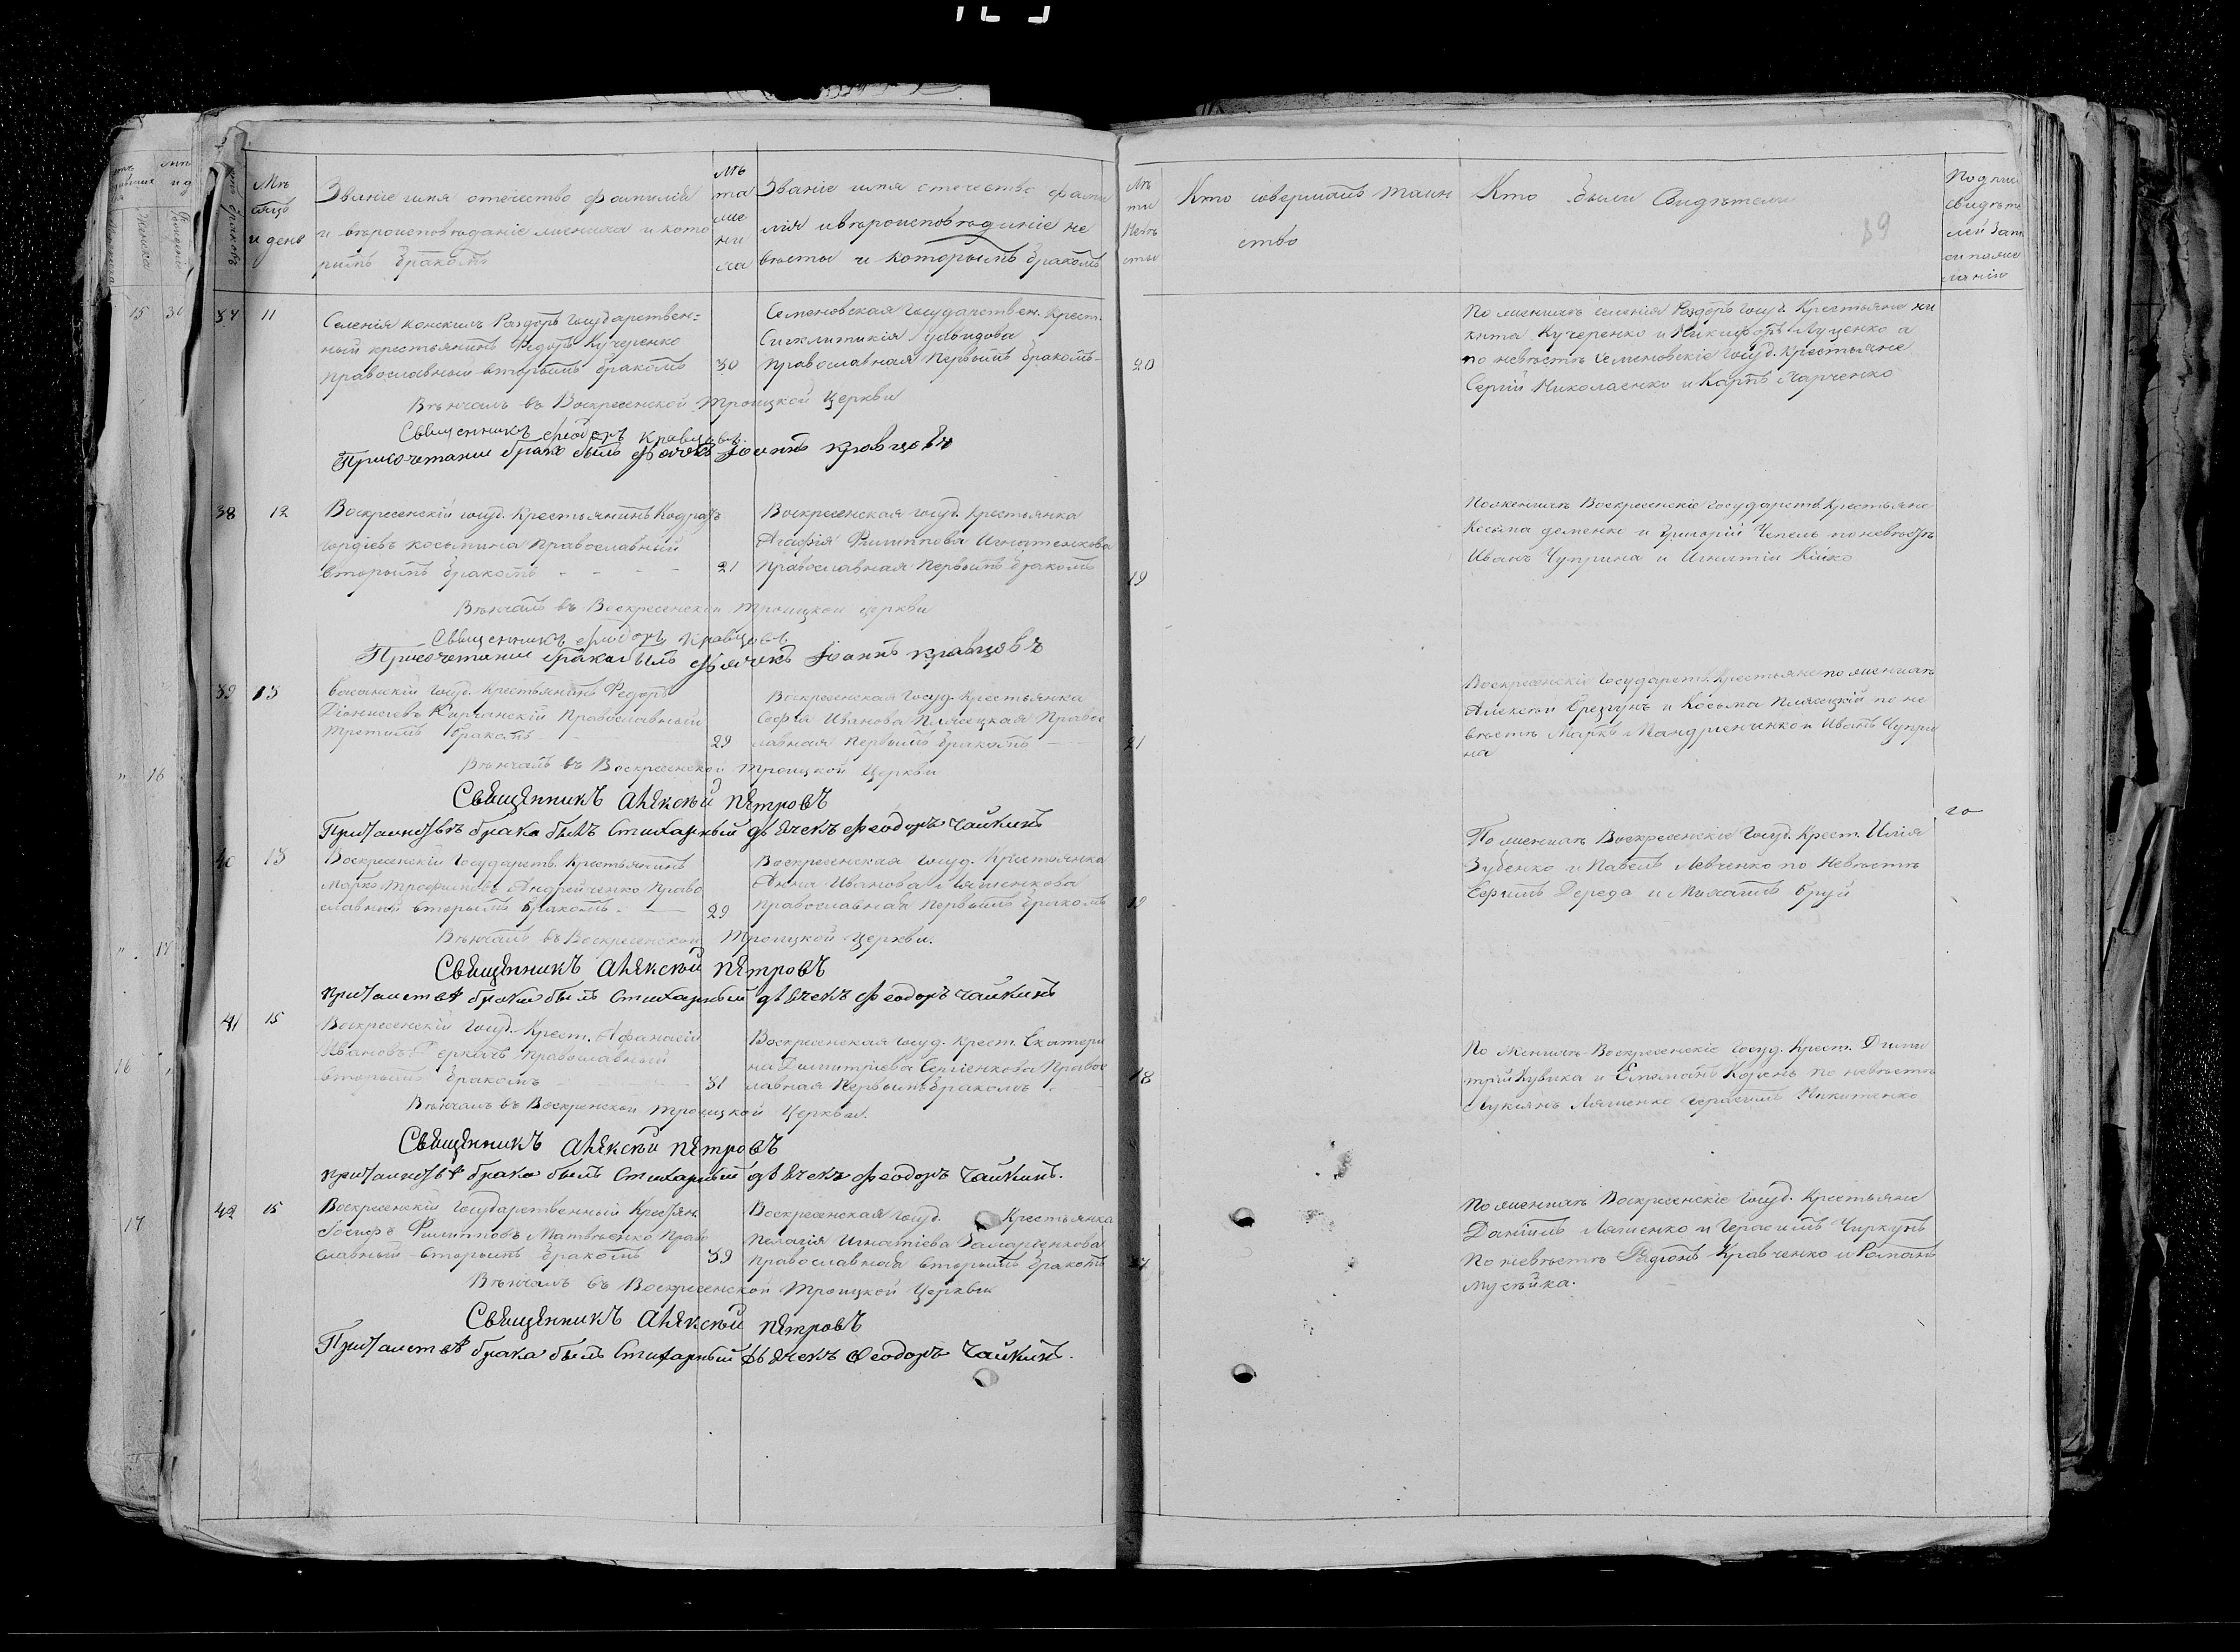 Мѣ
сяцъ
и день
Званіе имя отечество фамилія
и вѣроисповѣданіе жениха и кото
рымъ бракомъ
Лѣ
та
же
ни
ха
Званіе имя отечество фами
лія и вѣроисповѣданіе не
вѣсты и которымъ бракомъ
Лѣ
та
Невѣ
сты
Кто совершалъ таин
ство
Кто были Свидѣтели
89
Подпис
свидѣте
лей
37 11
Селенія конскихъ Раздоръ Государствен=
ный крестьянинъ Федоръ Кучеренко
православный вторымъ бракомъ
30
Семеновская Государствен. Крест.
Сигклитикія Давидова
православная Первымъ бракомъ
20
По женихѣ селенія Раздоръ Госуд. Крестьяне ни
кита Кучеренко и Никифоръ Луценко а
по невѣстѣ Семеновскіе Госуд. крестьяне
Сергій Николаенко и Карпъ Марченко
Вѣнчалъ въ Воскресенской Троицкой Церкви
Священникъ Феодоръ Кравцовъ.
Присочетании брака былъ Дьячекъ Іоаннъ кравцовъ
38 12
Воскресенскій госуд. Крестьянинъ Кодратъ
Гордіевъ косьмина Православный
вторымъ бракомъ
21
Воскресенская госуд. Крестьянка
Агафія Филиппова Игнатенкова
Православная Первымъ бракомъ
19
По женихѣ Воскресенскіе государств. Крестьяне
Косьма деменко и Григорій Чепель по невѣстѣ
Иванъ Чуприна и Игнатій Кійко
Вѣнчалъ въ Воскресенской Троицкой церкви
Священникъ Феодоръ Кравцовъ
Присочетании брака былъ Дьячекъ Іоаннъ кравцовъ
39 13
Госуд. Крестьянинъ Федоръ
Діонисіевъ Православный
третимъ бракомъ
29
Воскресенская Госуд. Крестьянка
Софія Иванова Пляжецкая Правос
лавная Первымъ бракомъ
21
Воскресенскіе Государств. Крестьяне по женихѣ
Алексѣй и Косьма по не
вѣстѣ Марко и Иванъ Чупри
на
Вѣнчалъ въ Воскресенской Троицкой Церкви
Священникъ Алексѣй Петровъ
При таинствѣ брака былъ Стихарный дьячекъ Феодоръ Чайкинъ
40 13
Воскресенскій Государств. Крестьянинъ
Марко Трофимовъ Андрейченко Право
славный вторымъ бракомъ
29
Воскресенская госуд. Крестьянка
Анна Иванова Ляшенкова
православная Первымъ бракомъ
19
По женихѣ Воскресенскіе Госуд. Крест. Илія
Зубенко и Павелъ Левченко по Невѣстѣ
Ефимъ Дереза и Михаилъ Бруй
Вѣнчалъ въ Воскресенской Троицкой Церкви.
Священникъ Алексѣй Петровъ
При таинствѣ брака былъ Стихарный дьячекъ Феодоръ Чайкинъ
41 15
Воскресенскій Госуд. Крест. Афанасій
Ивановъ Деркачъ православный
вторымъ бракомъ
31
Воскресенская госуд. крест. Екатери
на Димитріева Сергіенкова Правос
лавная Первымъ бракомъ
18
По женихѣ Воскресенскіе Госуд. Крест. Дими
трій и Корень по невѣстѣ
Лукіянъ Ляшенко Герасимъ Никитенко
Вѣнчалъ въ Воскресенской Троицкой Церкви.
Священникъ Алексѣй Петровъ
При таинствѣ брака былъ Стихарный дьячекъ Феодоръ Чайкинъ.
42 15
Воскресенскій Государственный Крестьян.
Іосифъ Филипповъ Матвѣенко Право
славный вторымъ бракомъ
39
Воскресенская Госуд. Крестьянка
Пелагія Игнатіева
православная вторымъ бракомъ
37
По женихѣ Воскресенскіе Госуд. Крестьяне
Даніилъ Ляшенко и Герасимъ Чиркунъ
По невѣстѣ Родіонъ Кравченко и Романъ
Мусѣйка.
Вѣнчалъ въ Воскресенской Троицкой Церкви
Священникъ Алексѣй Петровъ
При таинствѣ брака былъ Стихарный Дьячекъ Феодоръ Чайкинъ.